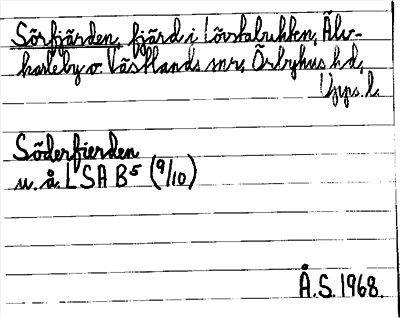 Sörfjärden, fjärd i Lövstabukten, Älv-
karleby o Västlands snr, Örbyhus hd,
Upps. l.
Söderfierden
u. å. LSA B5 (9/10)
Å.S. 1968.